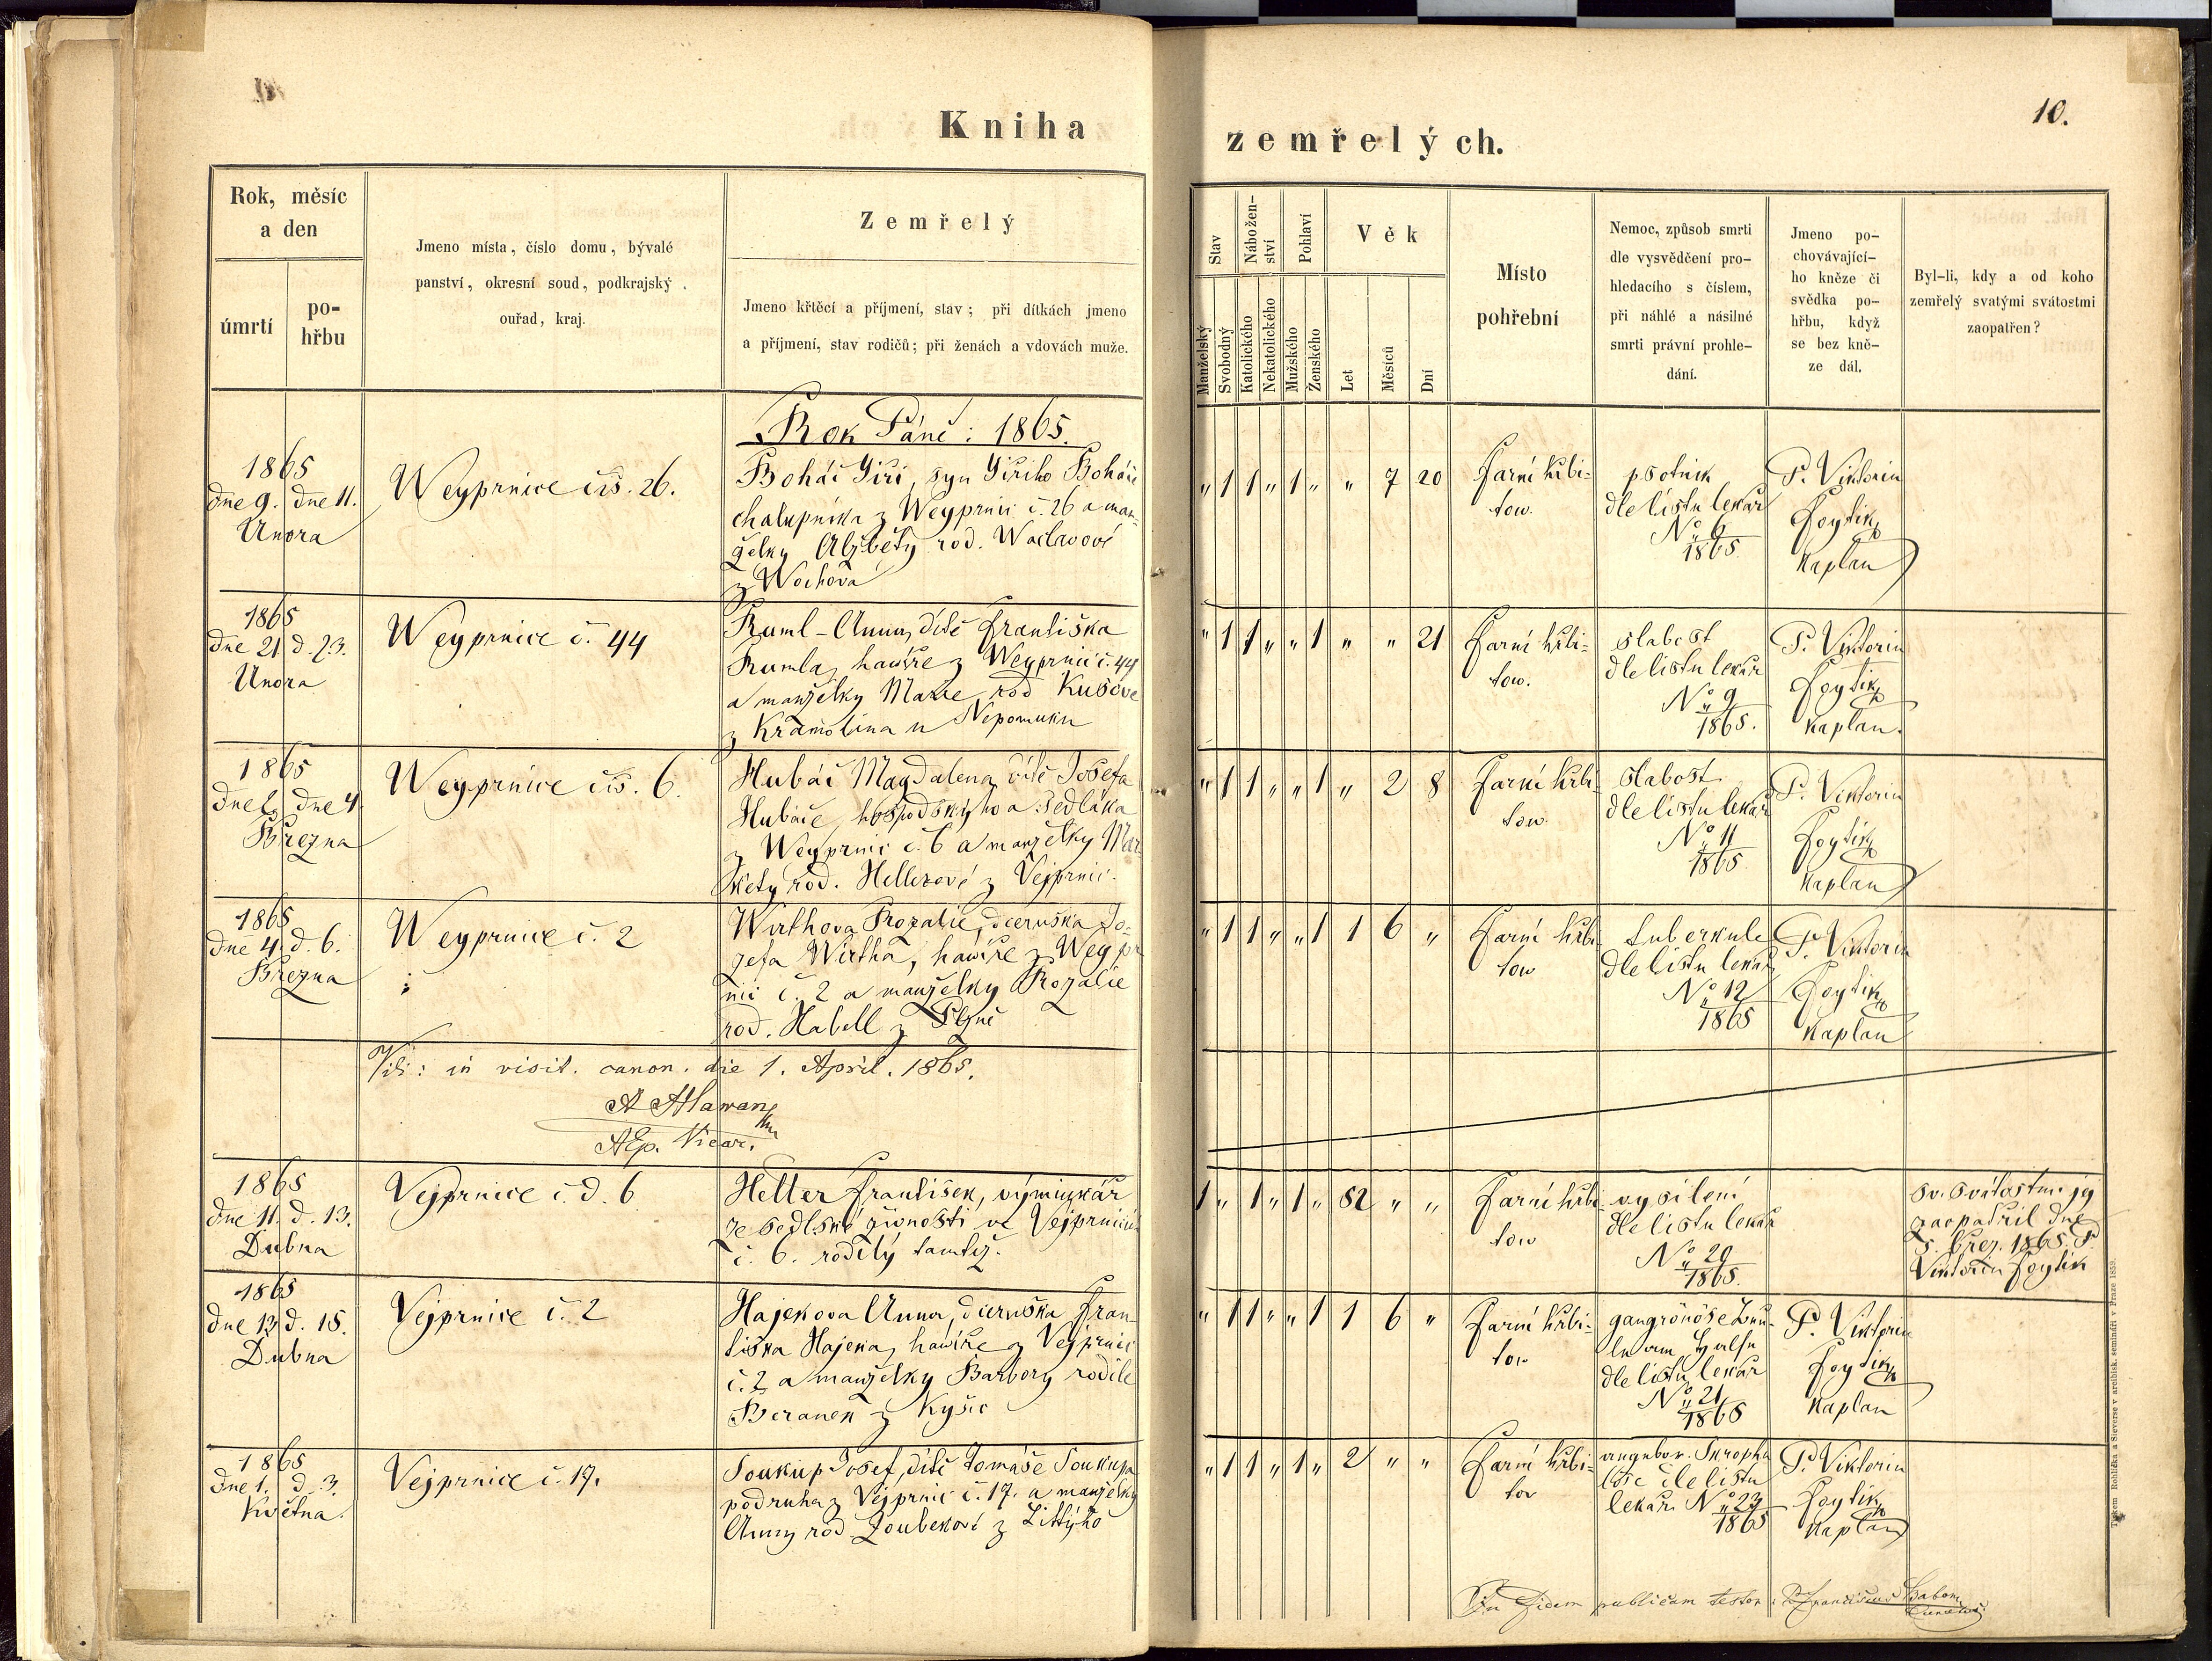 Kniha
zemřelých.
10.
Rok, měsíc
a den
úmrtí
po-
hřbu
Jmeno místa, číslo domu, bývalé
panství, okresní soud, podkrajský
ouřad, kraj.
Zemřelý
Jmeno křtěcí a příjmení, stav; při dítkách jmeno
a příjmení, stav rodičů; při ženách a vdovách muže.
Stav
Nábožen-
ství
Pohlaví
Věk
Manželský
Svobodný
Katolického
Nekatolického
Mužského
Ženského
Let
Měsíců
Dní
Místo
pohřební
Nemoc, způsob smrti
dle vysvědčení pro-
hledacího s číslem,
při náhlé a násilné
smrti právní prohle-
dání.
Jmeno po-
chovávající-
ho kněze či
svědka po-
hřbu, když
se bez kně-
ze dál.
Byl-li, kdy a od koho
zemřelý svatými svátostmi
zaopatřen?
Rok Páně: 1865.
1865
dne 9. dne 11.
Unora
Weyprnice čís. 26.
Boháč Jiří, syn Jiřího Boháče
chalupníka z Weyprnic č. 26 a man-
želky Alžběty rod. Waclavové
z Wochova
" 1 1 " 1 " " 7 20
Farní hřbi-
tow.
psotník
dle listu lekař
No 6
1865.
P. Viktorin
Foytík
Kaplan
1865
dne 21 d. 23.
Unora
Weyprnice č. 44
Ruml-Anna, dítě Františka
Rumla, hawíře z Weyprnic č. 44
a manželky Marie rod Kusove
z Kramolina u Nepomuku
" 1 1 " " 1 " " 21
Farní hřbi-
tow.
slabost
dle listu lekař
No 9
1865.
P. Viktorin
Foytík
Kaplan.
1865
dne 2. dne 4.
Března
Weyprnice čís. 6.
Hubáč Magdalena, dítě Josefa
Hubače, hospodského a sedláka
z Weyprnic č. 6 a manželky Mar-
kety rod. Hellerové z Vejprnic.
" 1 1 " " 1 " 2 8
Farní hřbi-
tow.
slabost
dle listu lekař
No 11
1865.
P. Viktorin
Foytík
Kaplan
1865
dne 4. d. 6.
Března
Weyprnice č. 2
Wirthova Rozalie, dceruška Jo-
zefa Wirtha, hawíře z Weypr
nic č. 2 a manželky Rozalie
rod. Habell z Plzně
" 1 1 " " 1 1 6 "
Farní hřbi
tow
tuberkule
dle listu lekař
No 12
1865
P. Viktorin
Foytík
Kaplan
Vidi: in visit. canon. die 1. April. 1865.
AEp. Vicar.
1865
dne 11. d. 13.
Dubna
Vejprnice č. d. 6
Heller František, výminkář
ze sedlské živnosti ve Vejprnicích
č. 6. rodilý tamtéž.
1 " 1 " 1 " 82 " "
Farní hřbi
tow
vysílení
dle listu lekař
No 20
1865.
Sv. Svátostmi jej
zaopatřil dne
5. břez. 1865. P.
Viktorin Foytík
1865
dne 13 d. 15.
Dubna
Vejprnice č. 2
Hajekova Anna, dceruška Fran-
tiška Hajeka, hawíře z Vejprnic
č. 2 a manželky Barbory rodilé
Beranek z Kyšic
" 1 1 " " 1 1 6 "
Farní hřbi-
tow
am Halse
dle listu lekař
No 21
1865
P. Viktorin
Foytík
Kaplan
1865
dne 1. d. 3.
Května.
Vejprnice č. 17.
Soukup Josef, dítě Tomáše Soukupa
podruha z Vejprnic č. 17. a manželky
Anny rod Zoubekové z Littýho
" 1 1 " 1 " 2 " "
Farní hřbi-
tov
angebor. Skrophu
lose dle listu
lekař. No 23
1865
P. Viktorin
Foytík
Kaplan
In fidem publicam testor: Franciscus
Tiskem Rohlíčka a Sieverse v arcibisk. semináři v Praze 1859.